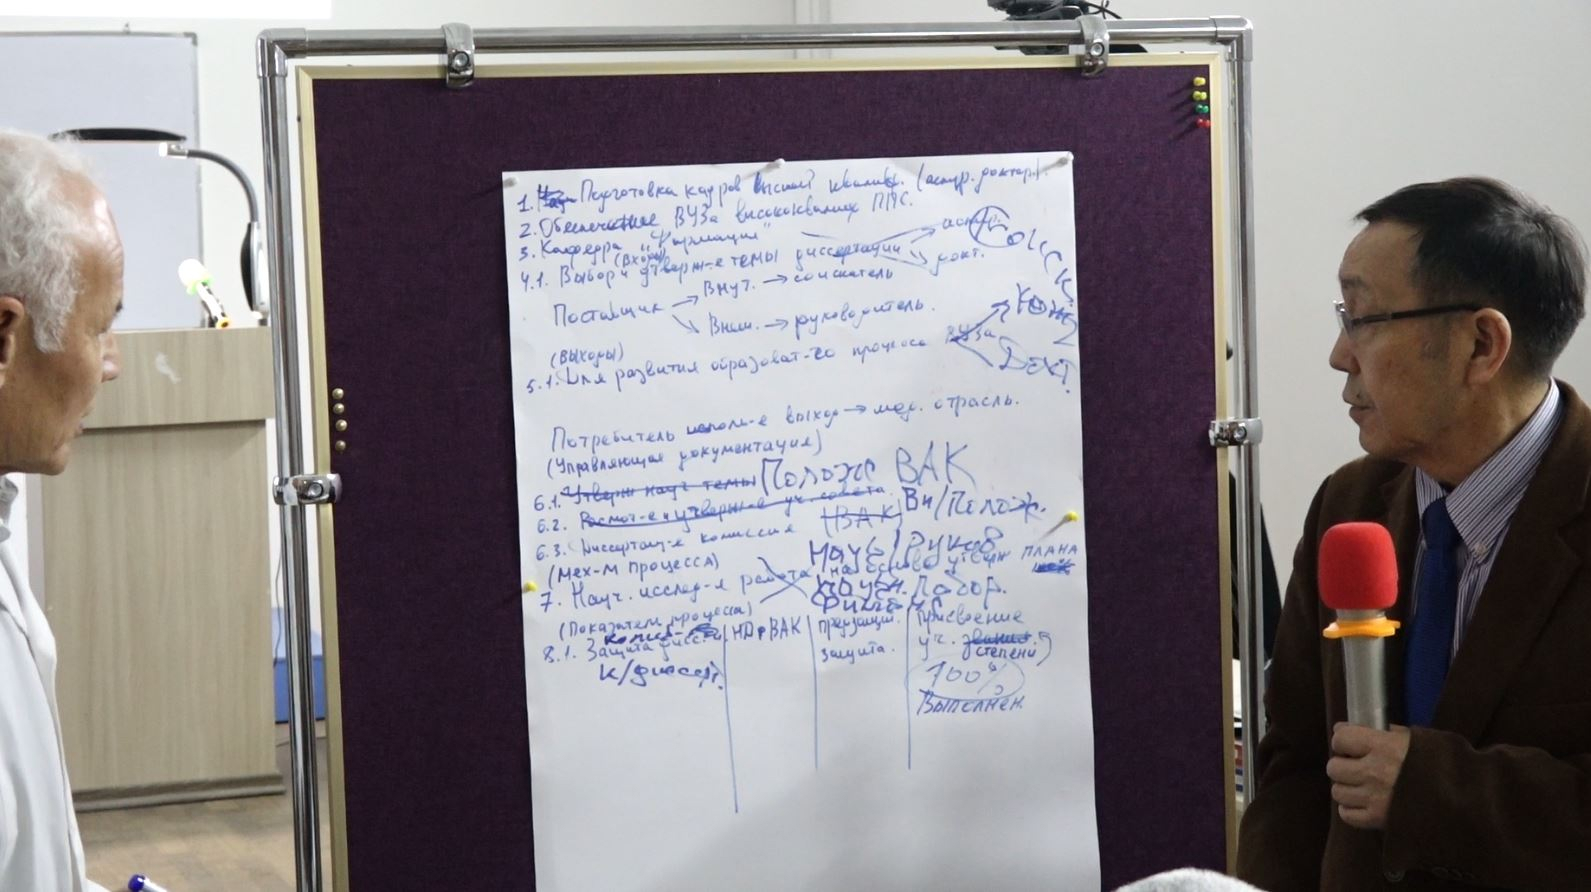 1. Подготовка кадров высшей квалиф. (аспир. доктор).
2. Обеспечение ВУЗа высококвалиф ППС.
3. Кафедра "Фармации"
(Входы)
4.1. Выбор и утверж-е темы диссертации аспир. докт.
Соиск
Поставщик → Внут. → соискатель
Внеш. → руководитель.
(ВЫХОДЫ)
5.1. Для развития образоват-го процесса ВУЗа
Потребитель исполь-е выход → мед. отрасль.
(Управляющая документация)
6.1. Утверж науч темы Полож ВАК
6.2. Расмот-е и утверж-е уч. совета Вн/Полож.
6.3. Диссертац-я комиссия (ВАК)
Науч/Руков
(мех-м процесса)
7. Науч. исслед-я работа на основе утверж ПЛАНА
Научн. Лабор.
(Показатели процесса)
8.1. Защита дисс. НД ВАК предзащит. защита. Присвоение уч. звания степени)
к/диссерт.
100%
Выполнен.